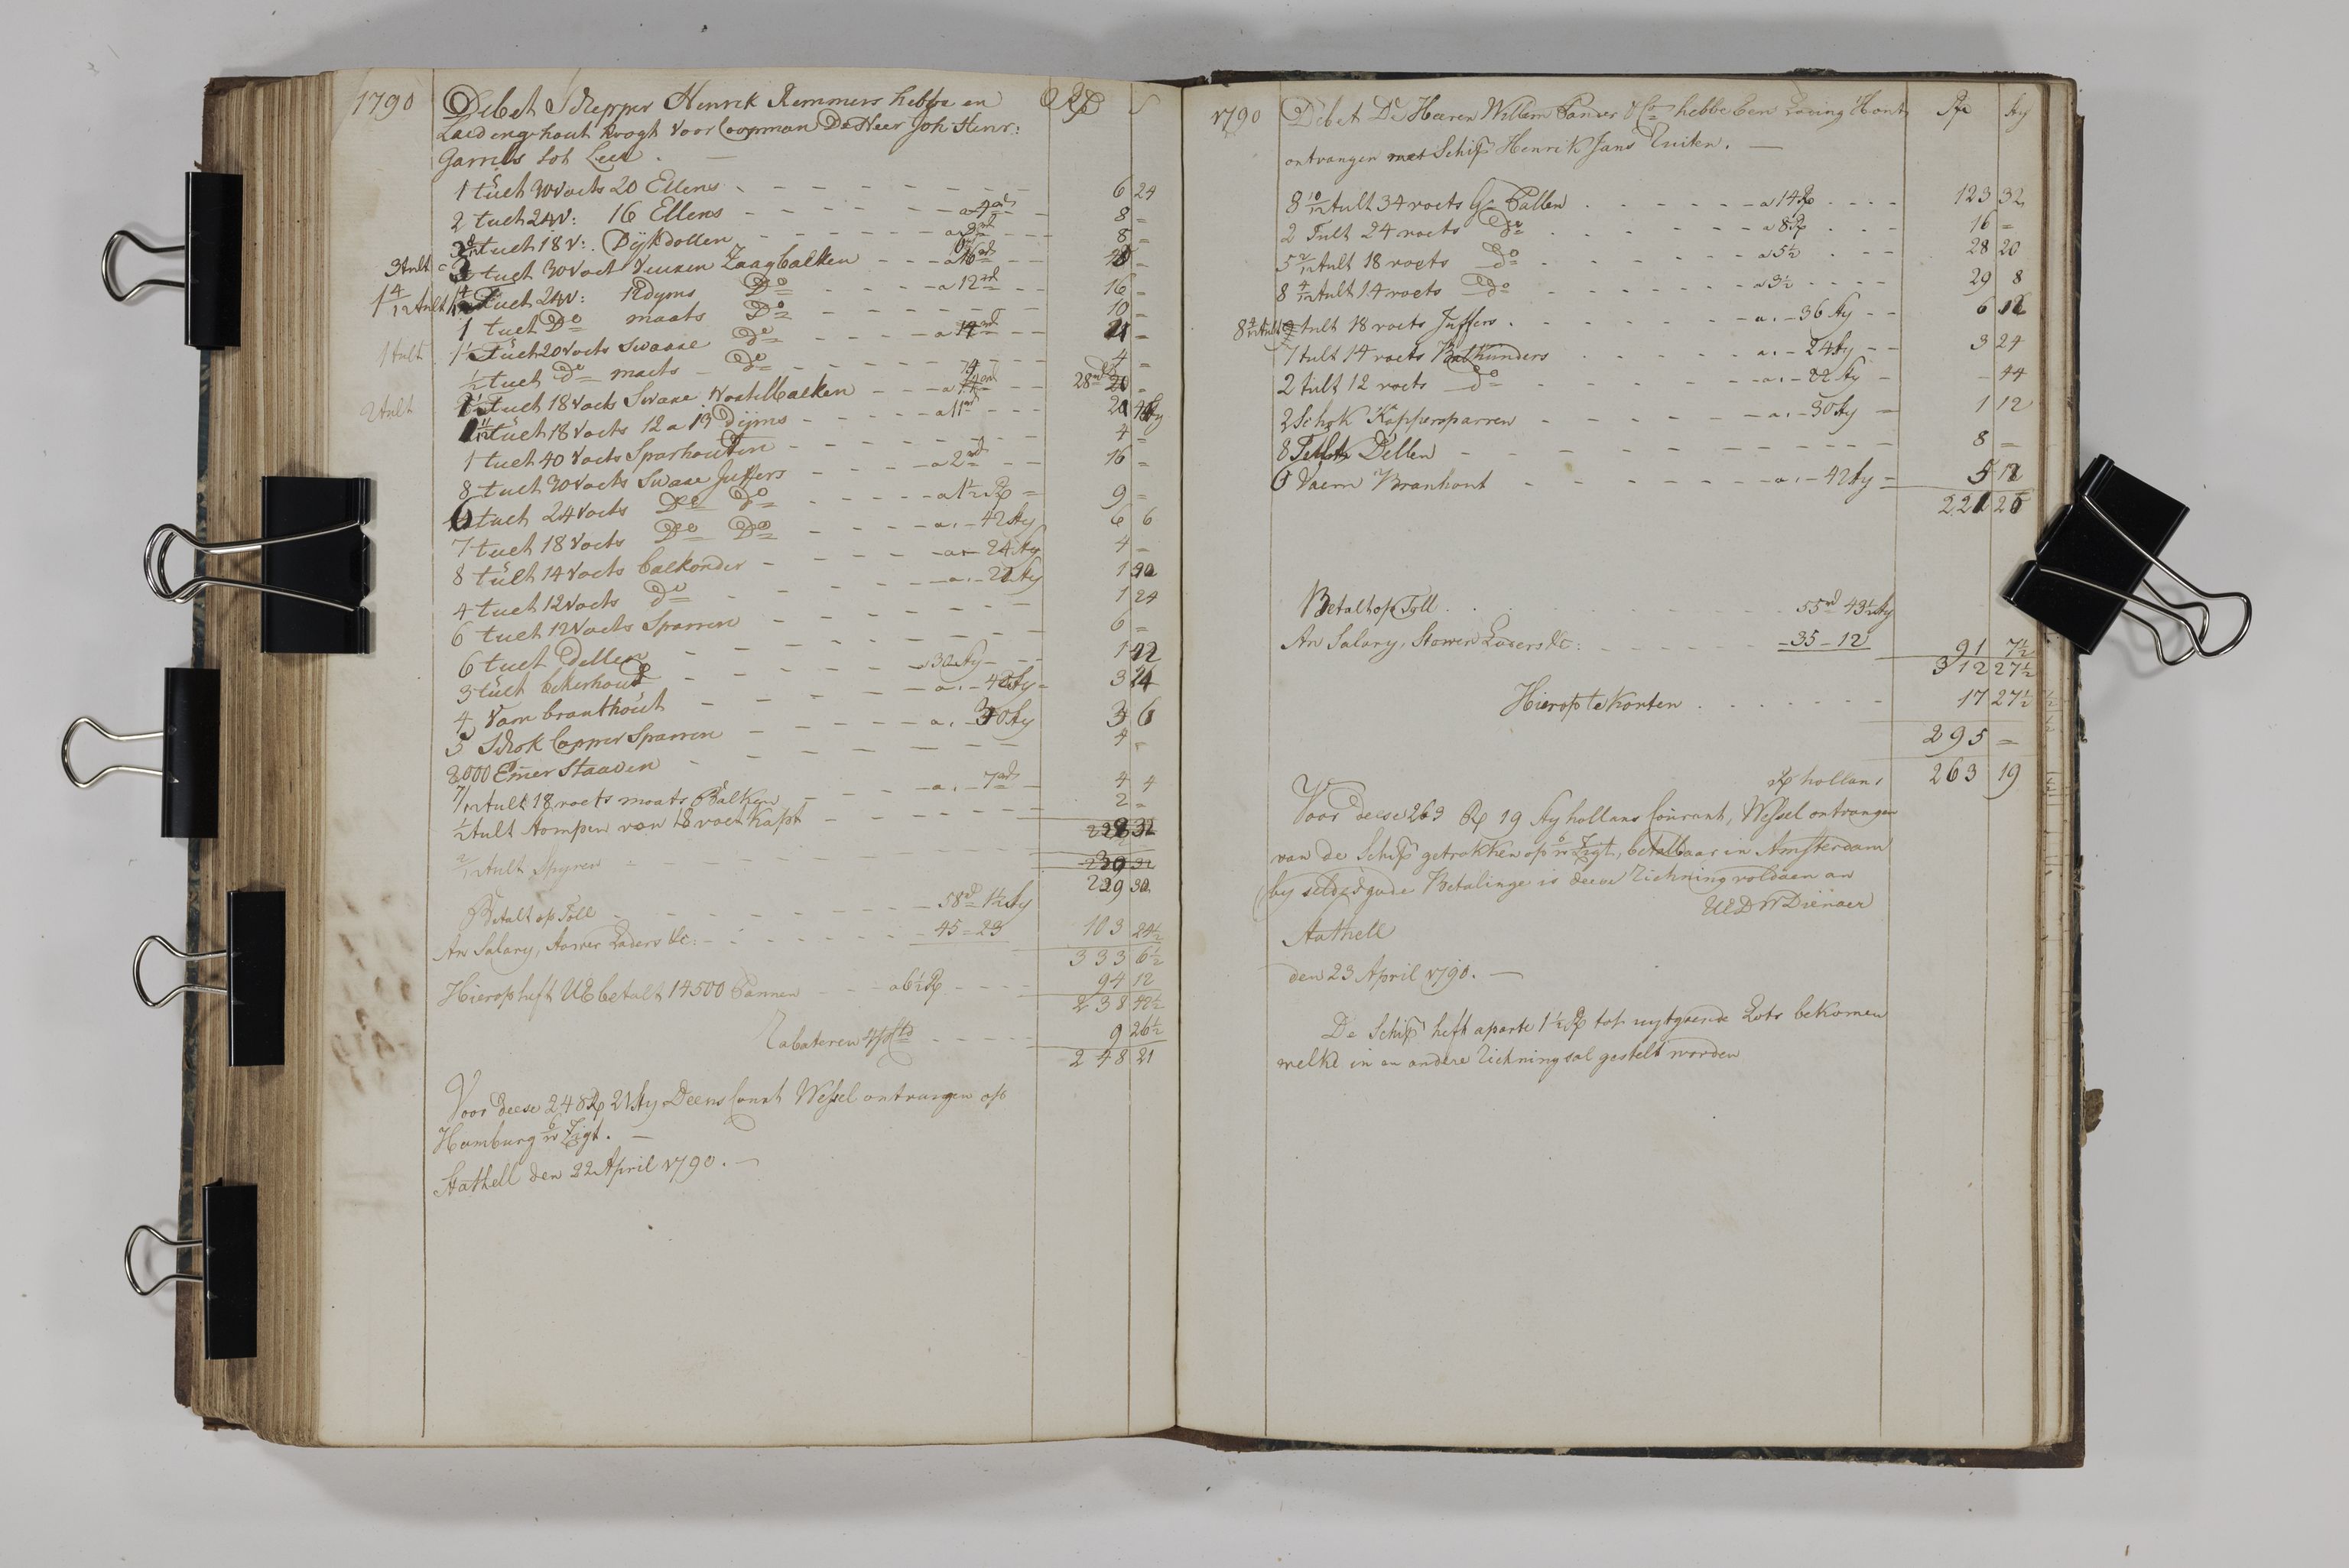 1790 Debet Schepper Henrik Remmers hebbe en Rd s
Laedenge hout kragt voor Coopman De Heer Joh: Henr:
Garrels tot Leer. —
1 tuelt 30 Voets 20 Ellens - - - 6 24
2 tuelt 24 V: 16 Ellens - - - a 4 rd - - 8 =
tuelt 18 V: Dijkdollen - - - 8 =
3 tult = 3 tuelt 30 Voet Zaagbalken - - - a 16 rd - -
1 4/12 tult tuelt 24 V: 12 dyms Do - - - a 12 rd - - 16 =
1 tuelt Do maats Do - - - 10 =
1 tult 1 1/2 Tuelt 20 Voets Swaare do - - - a 14 rd - - 21 =
1/2 tuelt do maets - do - - - 4 =
2 tult tuelt 18 Voets Swaare balken - - - a 14 rd - - 28 rd
tuelt 18 Voets 12 a 13 Dijms - - - a 11 rd - -
1 tuelt 40 Voets Sparhouten - - - 4 =
8 tuelt 30 Voets Swaae Juffers - - - a 2 rd - - 16 =
6 tuelt 24 Voets Do do - - - a 1 1/2 R = 9 =
7 tuelt 18 Voets Do Do - - - a. - 42 sty 6 6
8 tuelt 14 Voets balkonder - - - a - 24 sty 4 =
4 tuelt 12 Voets do - - - a. - 22 sty 1 40
6 tuelt 12 Voets Sparren - - - 1 24
6 tuelt Dellen - - - 6 =
3 tuelt bekerhout - - - a 30 sty - - 1 42
4 Vam branthout - - - a. - 42 sty - 3 24
5 Schok Copper Sparren - - - a. - 30 sty 3 6
2000 Emer Staaven - - - 4 =
7/12 tult 18 voets maats Balken - - - a. - 7 rd - 4 4
1/2 tult stompen van 18 voet kapt - - - 2 =
2/12 tult Spyren - - -
229 30
Betalt op Toll - - - 58 rd 1 1/2 sty
An Salary, Stower Laders &c: - - - 45 - 23 103 24 1/2
333 6 1/2
Hierop heft UE betalt 14500 Pannen - - a 6 1/2 R - - 94 12
238 42 1/2
Rabateren 4 pCto - - - 9 26 1/2
248 21
Voor deese 248 R 21 sty Deens Courat Wessel ontvangen op
Hamburg Zigt. —
Stathell den 22 April 1790. —
1790 Debet De Heeren Willem Pander & Co hebbe Een Laeing Hout Rd sty
ontvangen met Schip Henrik Jans Tuiten. —
8 10/12 tult 34 voets Gr Ballen - - - a 14 R - - 123 32
2 Tult 24 voets do - - - a 8 R - - 16 =
5 2/12 tult 18 voets do - - - a 5 1/2 - - 28 20
8 4/12 tult 14 voets do - - - a 3 1/2 - - 29 8
8 4/12 tult tult 18 voets Juffers - - - a. - 36 sty - - 6 12
7 tult 14 voets Balkunders - - - a. - 24 sty - - 3 24
2 tult 12 voets do - - - a. - 22 sty - - 44
2 Schok Koppersparren - - - a. - 30 sty = 1 12
8 Tult Dellen - - - 8 =
6 Vaem Branhout - - - a. - 42 sty = 5 12
221 20
Betalt op Toll - - - 55 rd 43 1/2 sty
An Salary, Stower Laders &c: - - - 35 - 12 91 7 1/2
312 27 1/2
Hierop te Korten - - - 17 27 1/2
295 =
R hollans 263 19
Voor deese 263 R 19 sty hollans Courant, Wessel ontvangen
van de Schip getrokken op Zigt, betallbaar in Amsterdam
by selver gode Betalinge is deese Rickning voldaen an
UEDWDienaer
Stathell
den 23 April 1790. —
De Schip heft aparte 1 1/2 R tot uytgaende Lots bekomen
welke in en andere Rickning sal gestelt worden